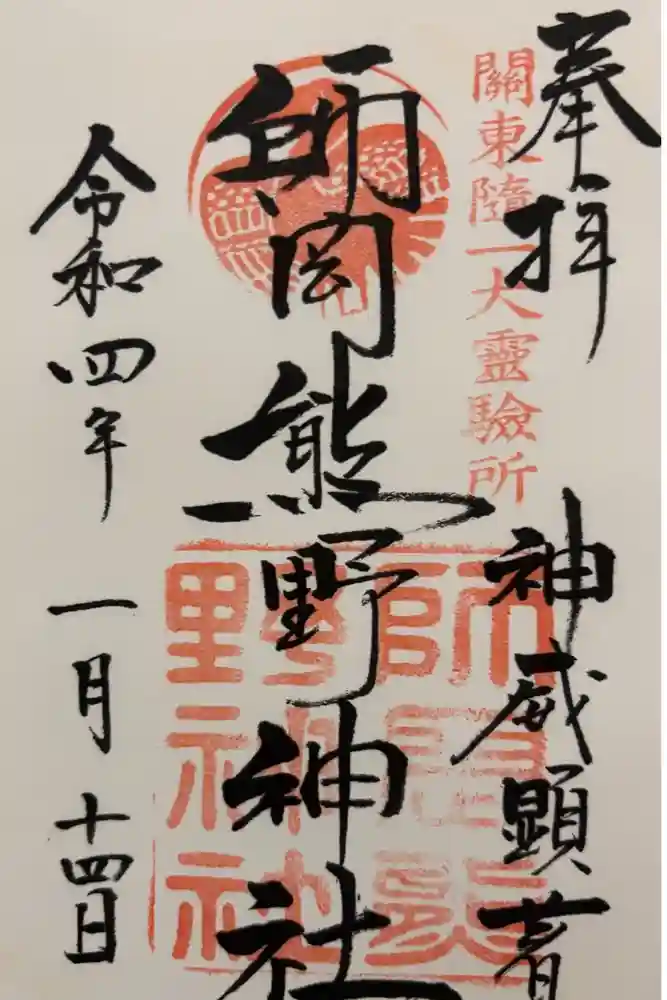 奉拝
關東隨一大靈驗所
神威顕著
師岡熊野神社
師岡熊野神社
令和四年 一月 十四日